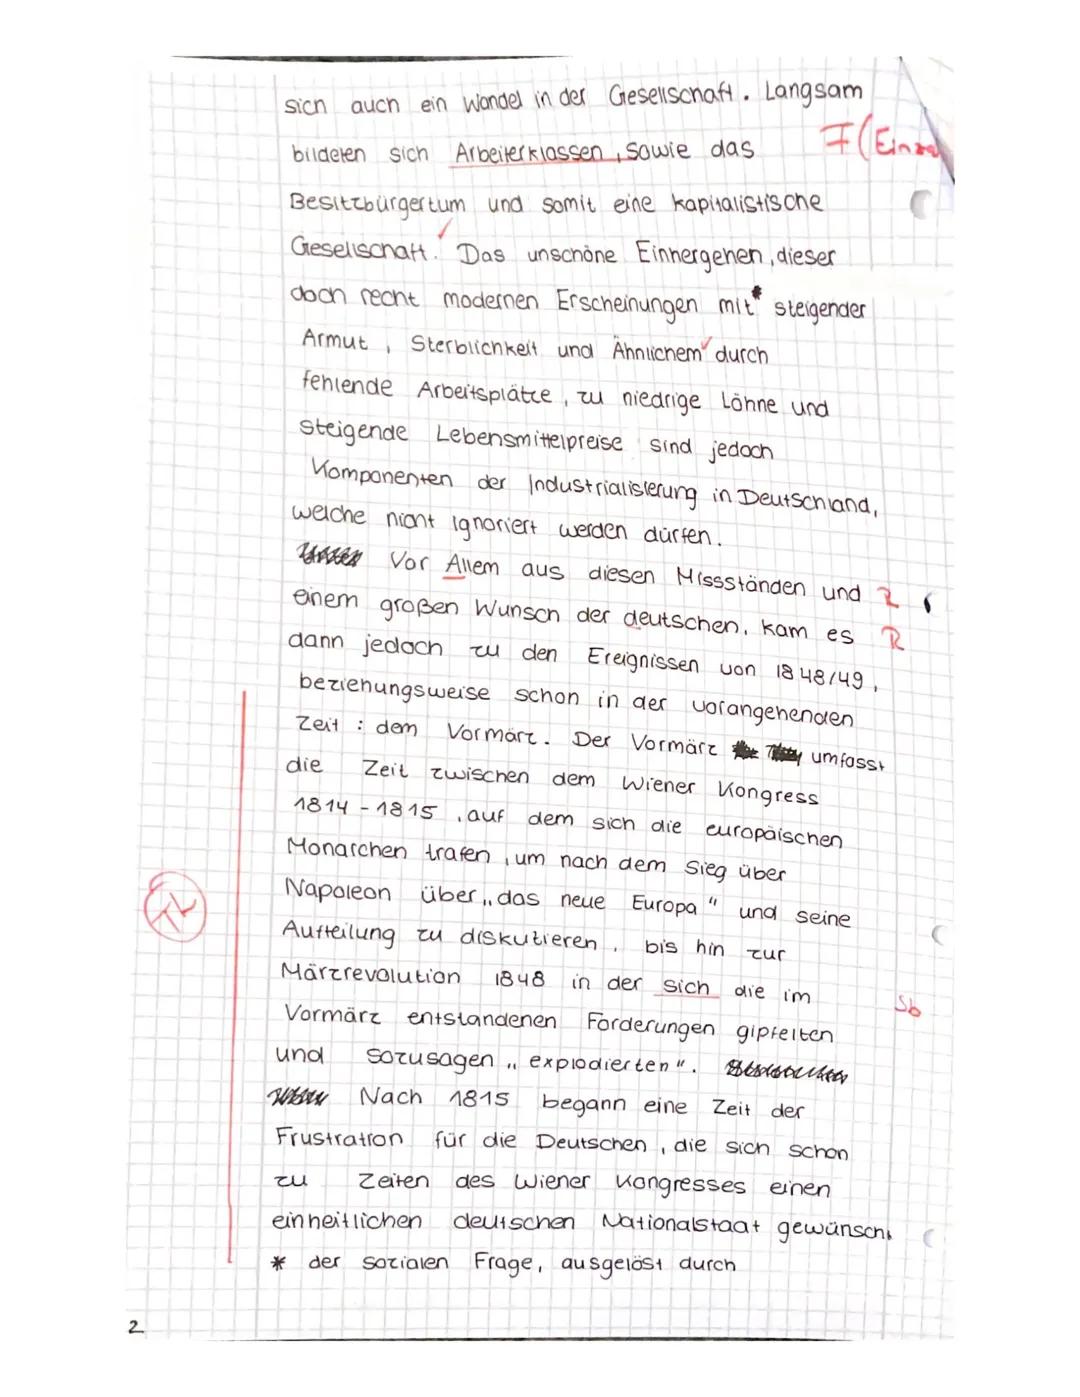 sich auch ein Wandel in der Gesellschaft. Langsam
bildeten sich Arbeiterklassen, sowie das F (Einza
Besitzbürgertum und somit eine kapitalistische
Gesellschaft. Das unschöne Einhergehen, dieser
doch recht modernen Erscheinungen mit* steigender
Armut, Sterblichkeit und Ähnlichem durch
fehlende Arbeitsplätze, zu niedrige Löhne und
steigende Lebensmittelpreise sind jedoch
Komponenten der Industrialisierung in Deutschland,
welche nicht ignoriert werden dürfen.
Vor Allem aus diesen Missständen und R
einem großen Wunsch der deutschen, kam es R
dann jedoch zu den Ereignissen von 1848/49,
beziehungsweise schon in der vorangehenden
Zeit: dem Vormärz. Der Vormärz umfasst
die Zeit zwischen dem Wiener Kongress
1814-1815, auf dem sich die europäischen
Monarchen trafen, um nach dem Sieg über
Napoleon über „das neue Europa" und seine
Aufteilung zu diskutieren, bis hin zur
Märzrevolution 1848 in der sich die im Sb
Vormärz entstandenen Forderungen gipfelten
und sozusagen „explodierten".
Nach 1815 begann eine Zeit der
Frustration für die Deutschen, die sich schon
zu Zeiten des Wiener Kongresses einen
einheitlichen deutschen Nationalstaat gewünscht
* der sozialen Frage, ausgelöst durch
2